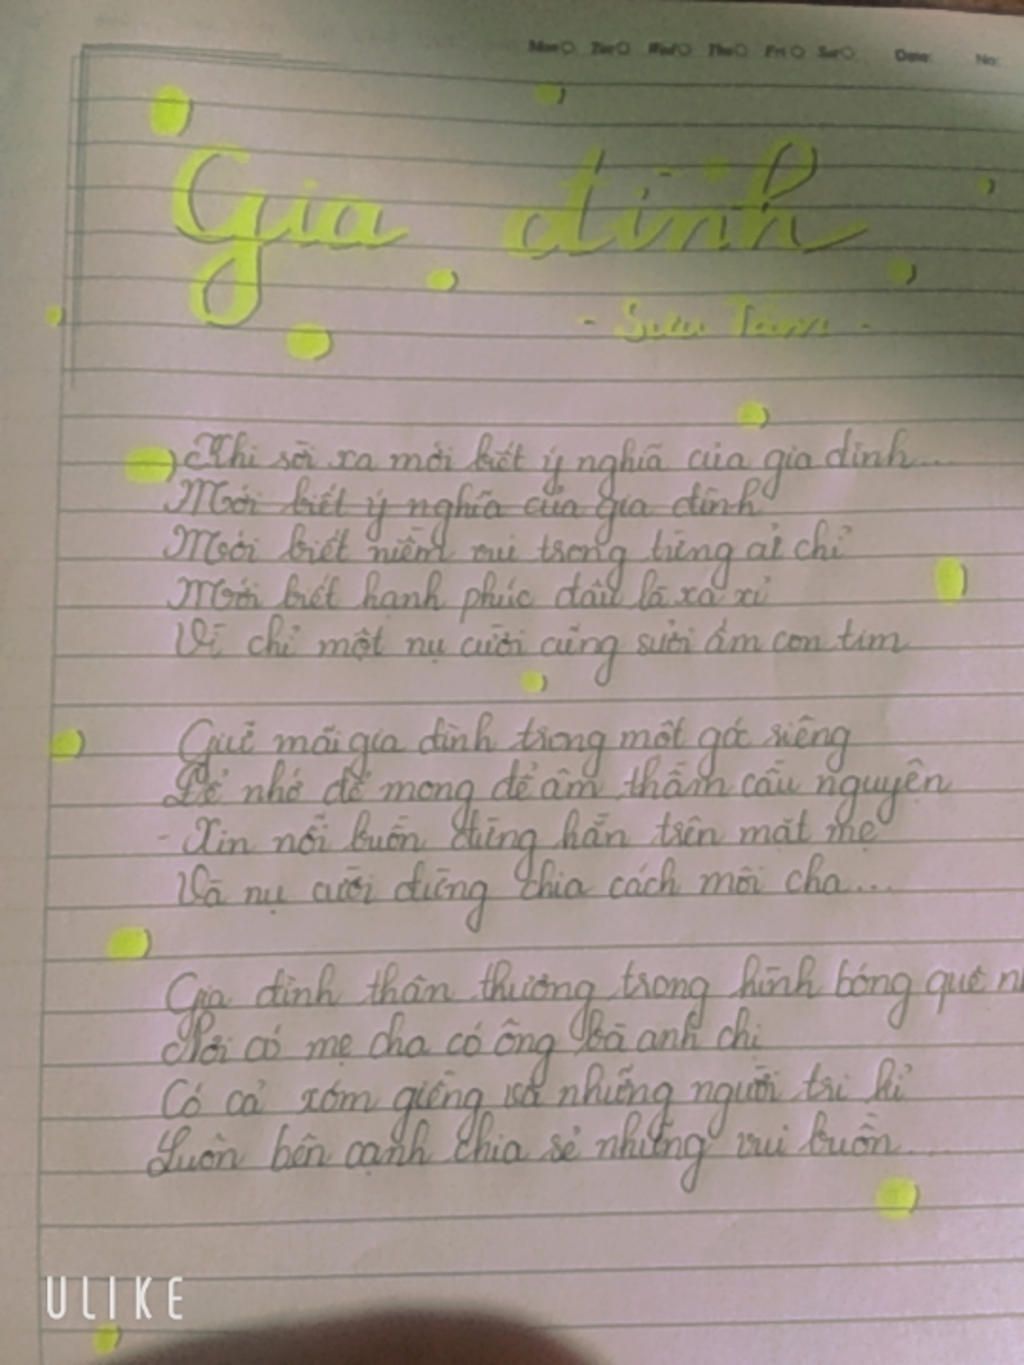 Mon Tue Wed Thu Fri Sat Date: No:
Gia đình
- Sưu Tầm -
Khi rời xa mới biết ý nghĩa của gia đình...
Mới biết ý nghĩa của gia đình
Mới biết niềm vui trong từng ai chỉ
Mới biết hạnh phúc đâu là xa xỉ
Vì chỉ một nụ cười cũng sưởi ấm con tim
Giữ mãi gia đình trong một góc riêng
Để nhớ để mong để âm thầm cầu nguyện
- Xin nỗi buồn đừng hằn trên mặt mẹ
Và nụ cười đừng chia cách môi cha...
Gia đình thân thương trong hình bóng quê
Nơi có mẹ cha có ông bà anh chị
Có cả xóm giềng và những người tri kỉ
Luôn bên cạnh chia sẻ những vui buồn....
ULIKE